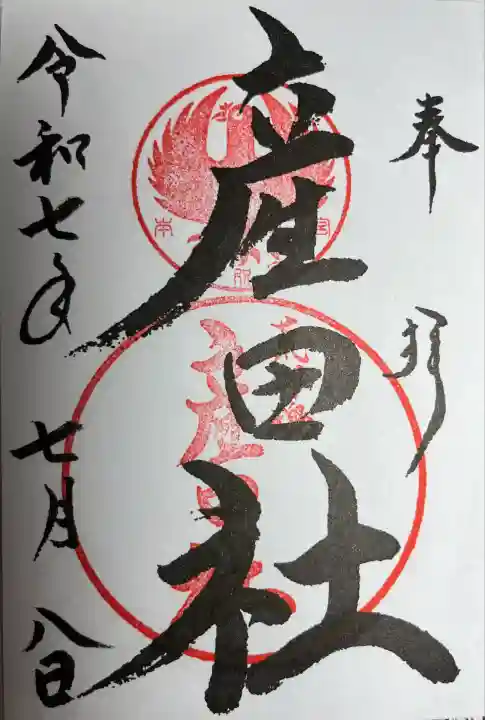 奉拝
産田社
令和七年 七月 八日